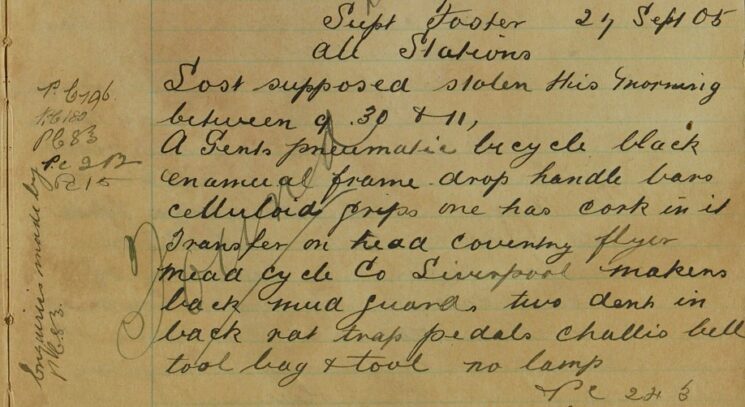 Supt Foster 27 Sept 05
All Stations
Lost supposed stolen this morning
between 9.30 & 11,
A Gents pneumatic bicycle black
enamual frame drop handle bars
celluloid grips one has cork in it
Transfer on head coventry flyer
mead cycle Co Liverpool makers
back mud guard, two dents in
back rat trap pedals challis bell
tool bag & tool no lamp
PC 243
P.C 196
P.C 182
PC 83
P.C 2
PC 15
Enquiries made by
PC 83.
Found